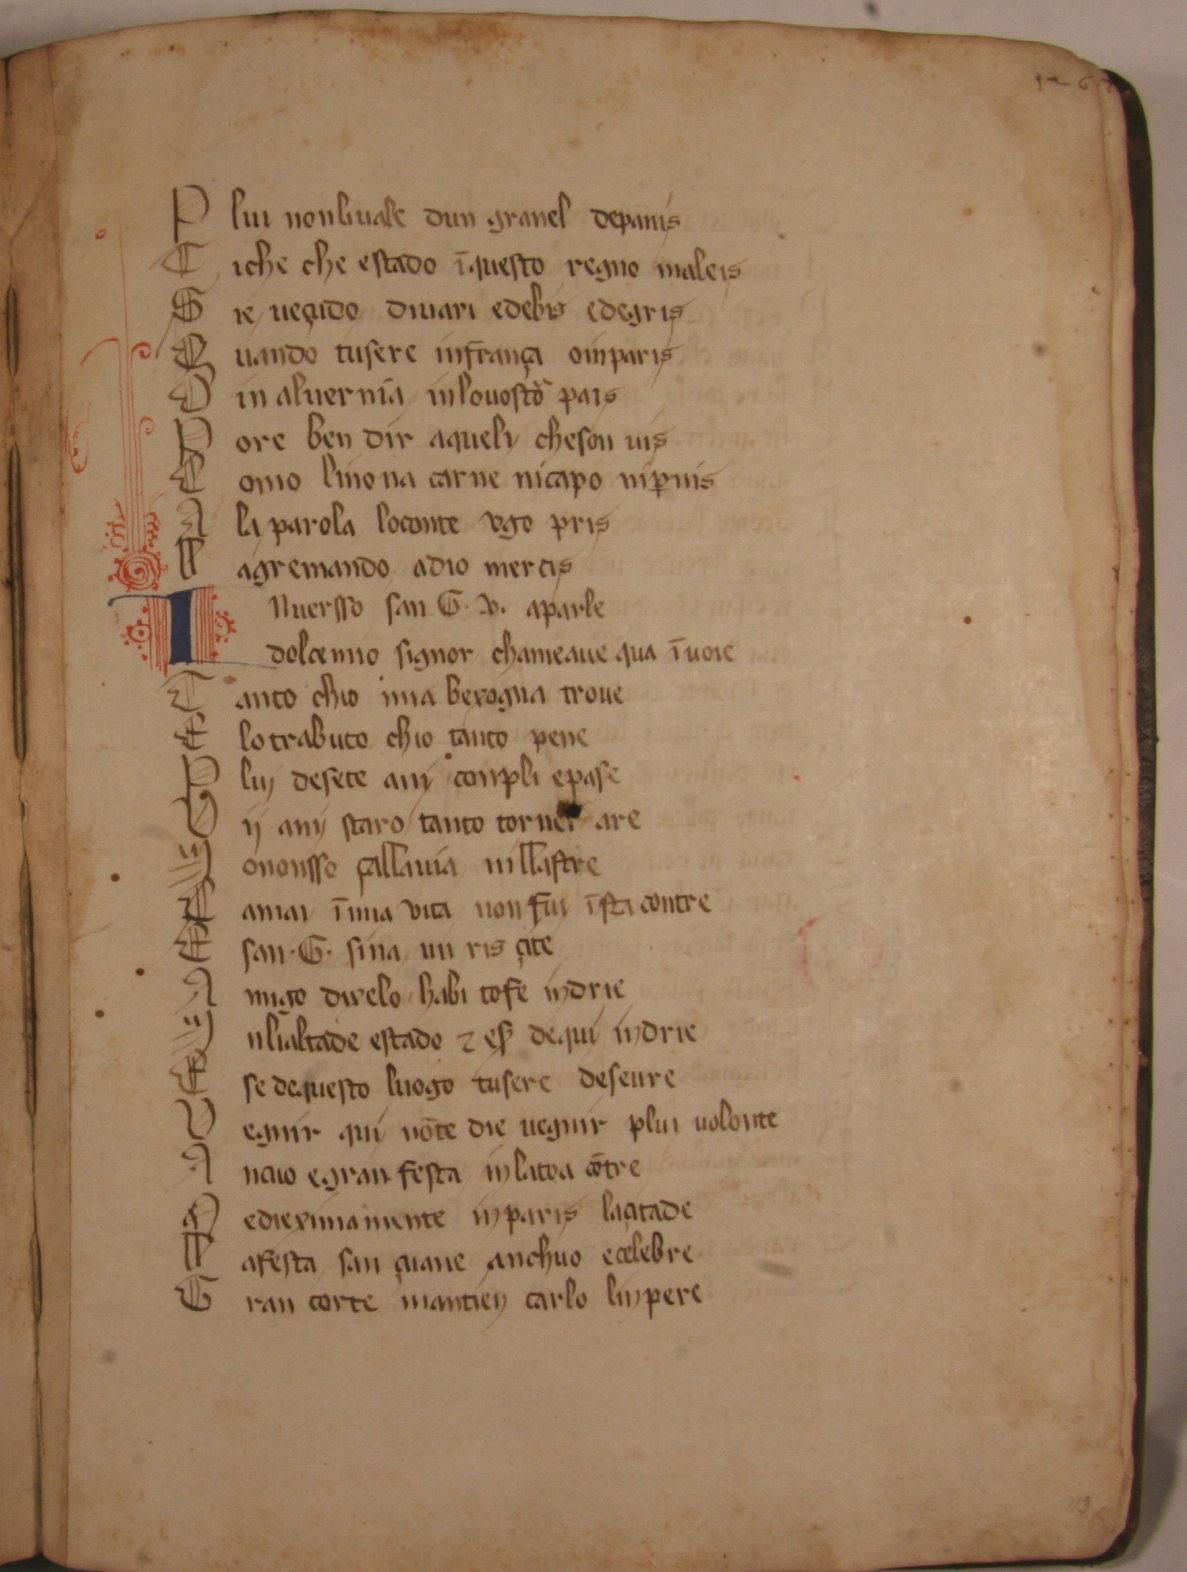 P lui non li uale dun granel de panis
T iche che estado ī questo regno maleis
S ie ueçudo diuari e debis e de gris
Q uando tu sere in frança o in paris
O in aluernia in lo uostrō pais
P ore ben dir a queli che son uis
C omo l ino na carne ni capo ni pernis
A la parola lo conte vgo pris
L agremando a dio mercis
I Nuersso san G. v. a parle
dolce mio signor cha me aue qua ī uoie
T anto ch io mia bexogna troue
E lo trabuto ch io tanto pene
P luj de sete anj conpli e pase
V ij anj staro tanto torner are
M on onsso çallauia ni llastre
E amai ī mia vita non fui ī sta contre
E san .G. si na un ris çite
A migo diuelo habi to fe in drie
M lialtade estado ⁊ es de qui in drie
E se de questo luogo tu sere deseure
V egnir qui nōte die uegnir plui uolonte
A ncuo e gran festa in la toa cōtre
M ediexima mente in paris la çitade
L a festa san çuane anchuo e celebre
G ran corte mantien carlo l inpere